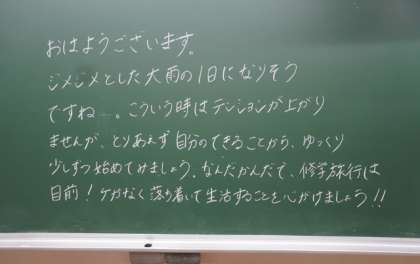 おはようございます。
ジメジメとした大雨の1日になりそう
ですね…。こういう時はテンションが上がり
ませんが、とりあえず自分のできることから、ゆっくり
少しずつ始めてみましょう。なんだかんだで、修学旅行は
目前！ケガなく落ち着いて生活することを心がけましょう!!